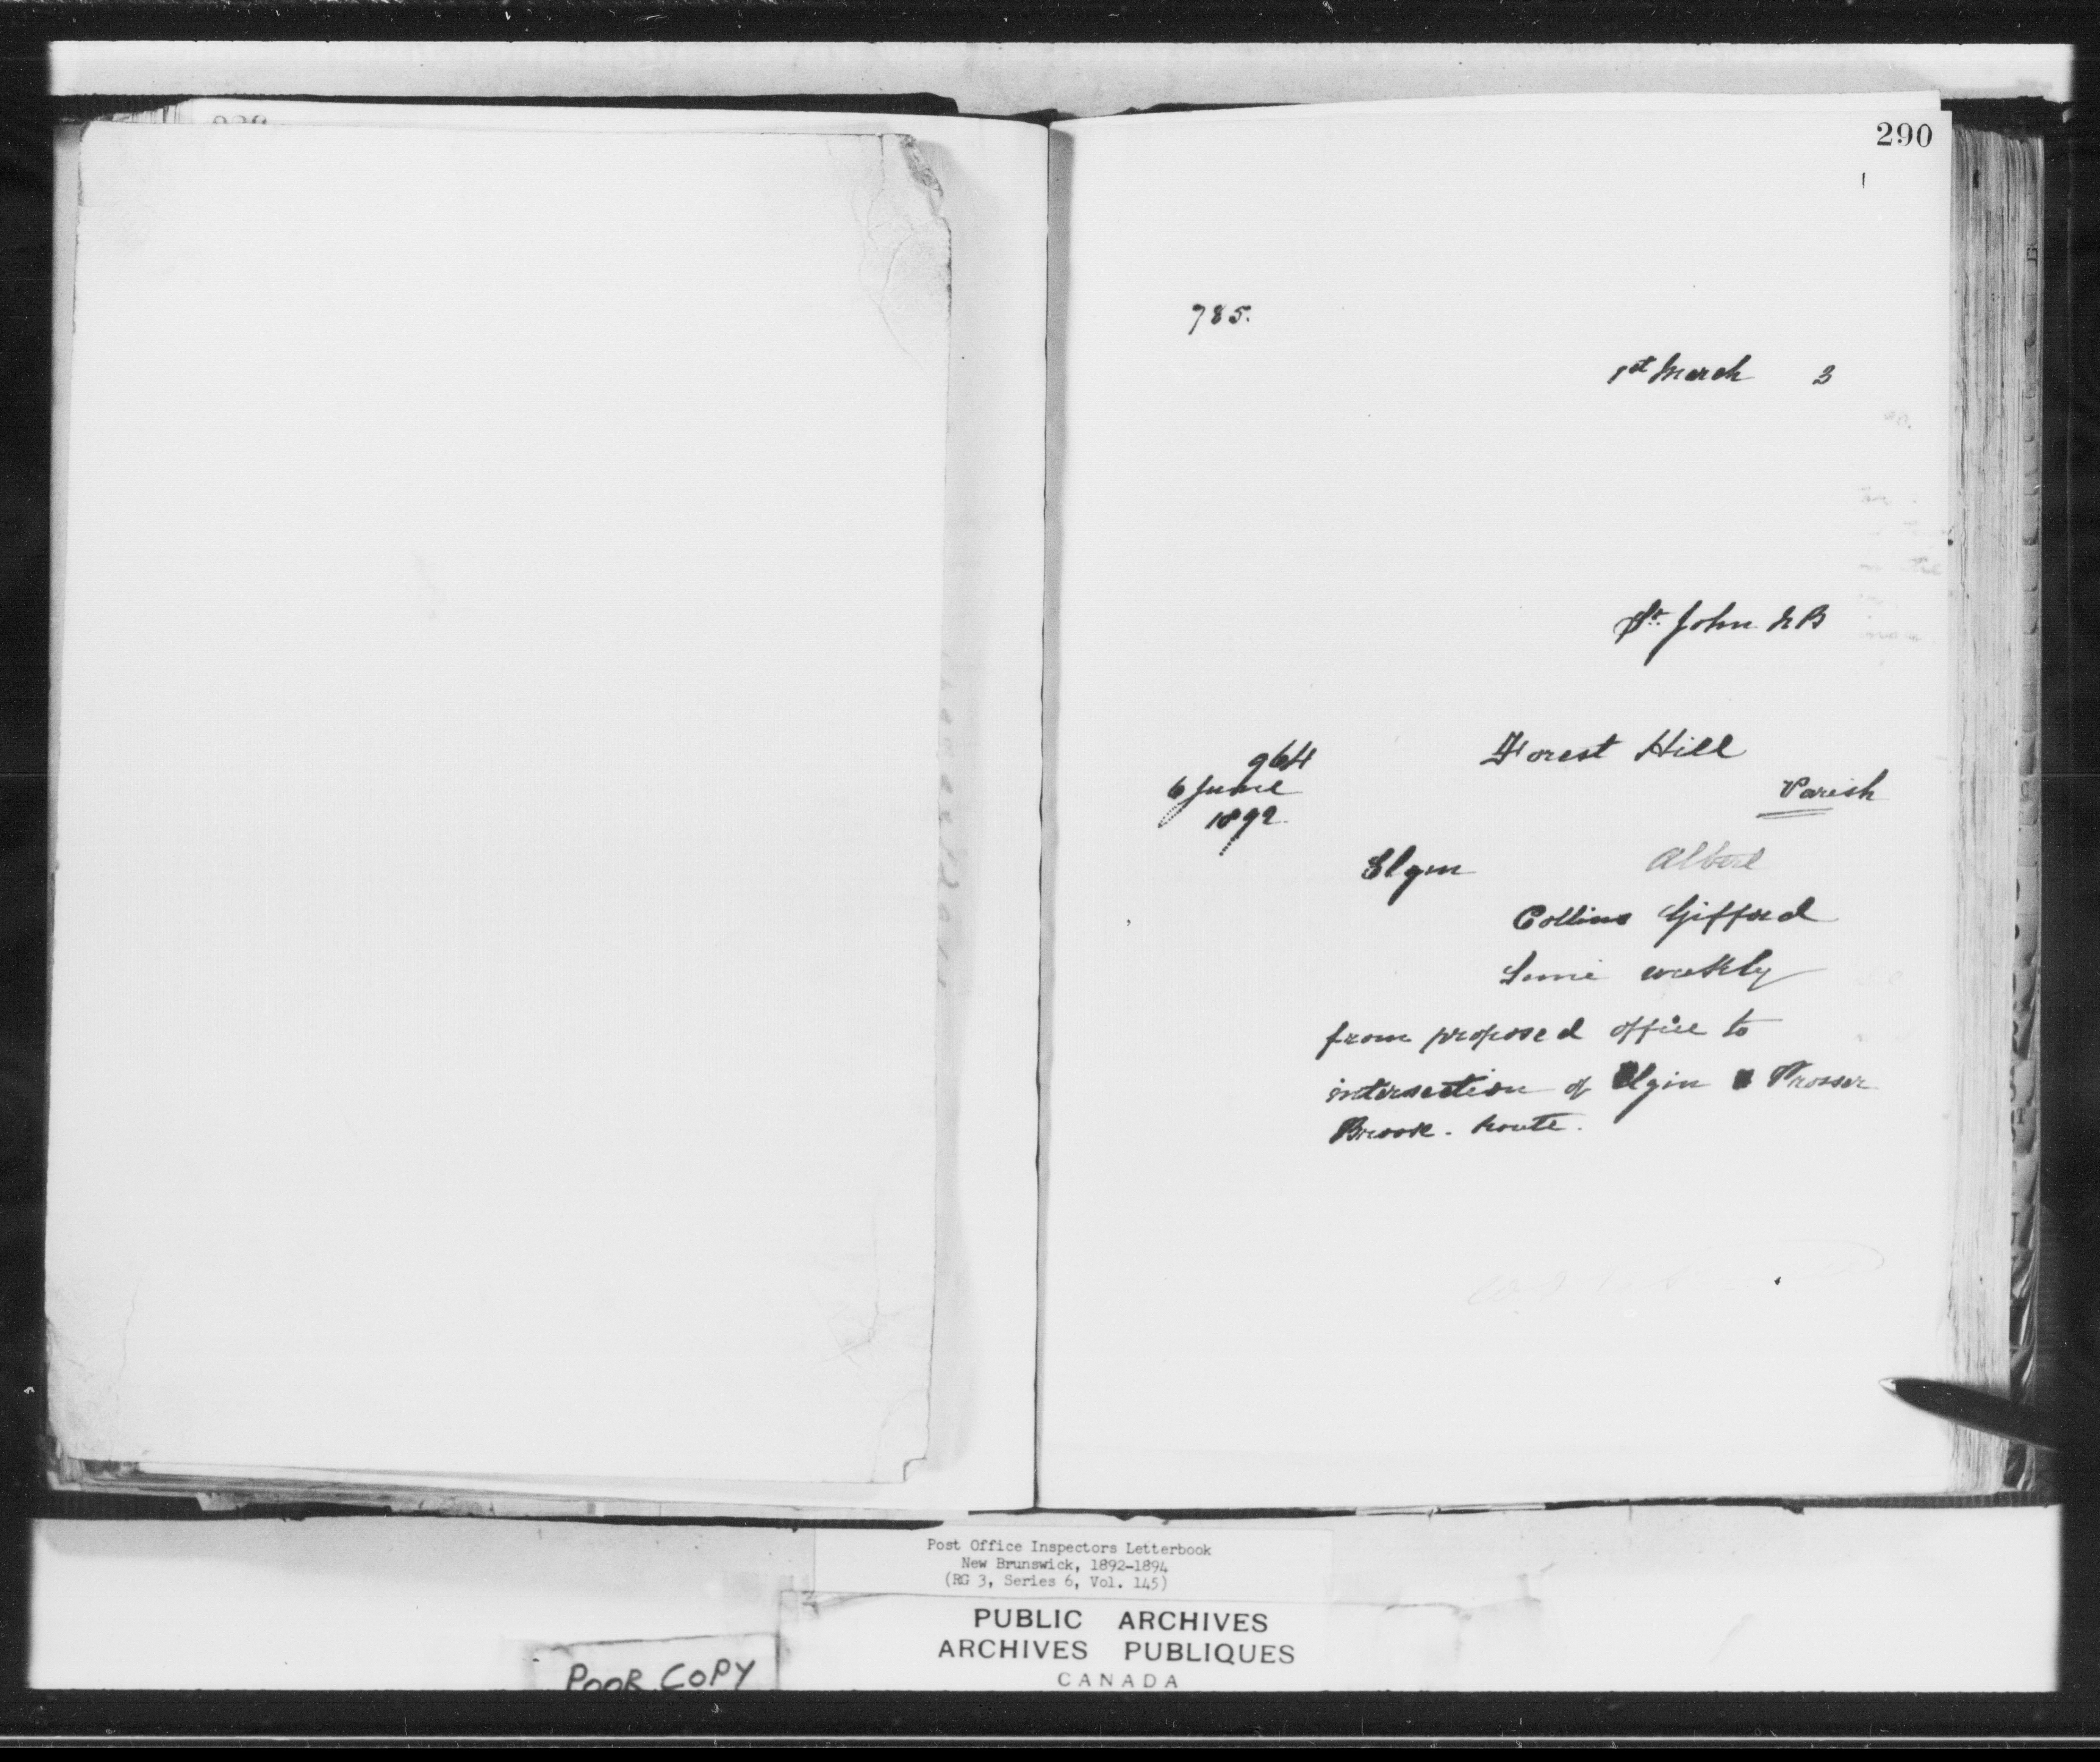 290
785.
1st March 3
St. John NB
964
6 June
1892.
Forest Hill
Parish
Elgin Albert
Collins Gifford
Semi weekly
from proposed office to
intersection of Elgin & Prosser
Brook. Route.
Post Office Inspectors Letterbook
New Brunswick, 1892-1894
(RG 3, Series 6, Vol. 145)
PUBLIC ARCHIVES
ARCHIVES PUBLIQUES
CANADA
POOR COPY